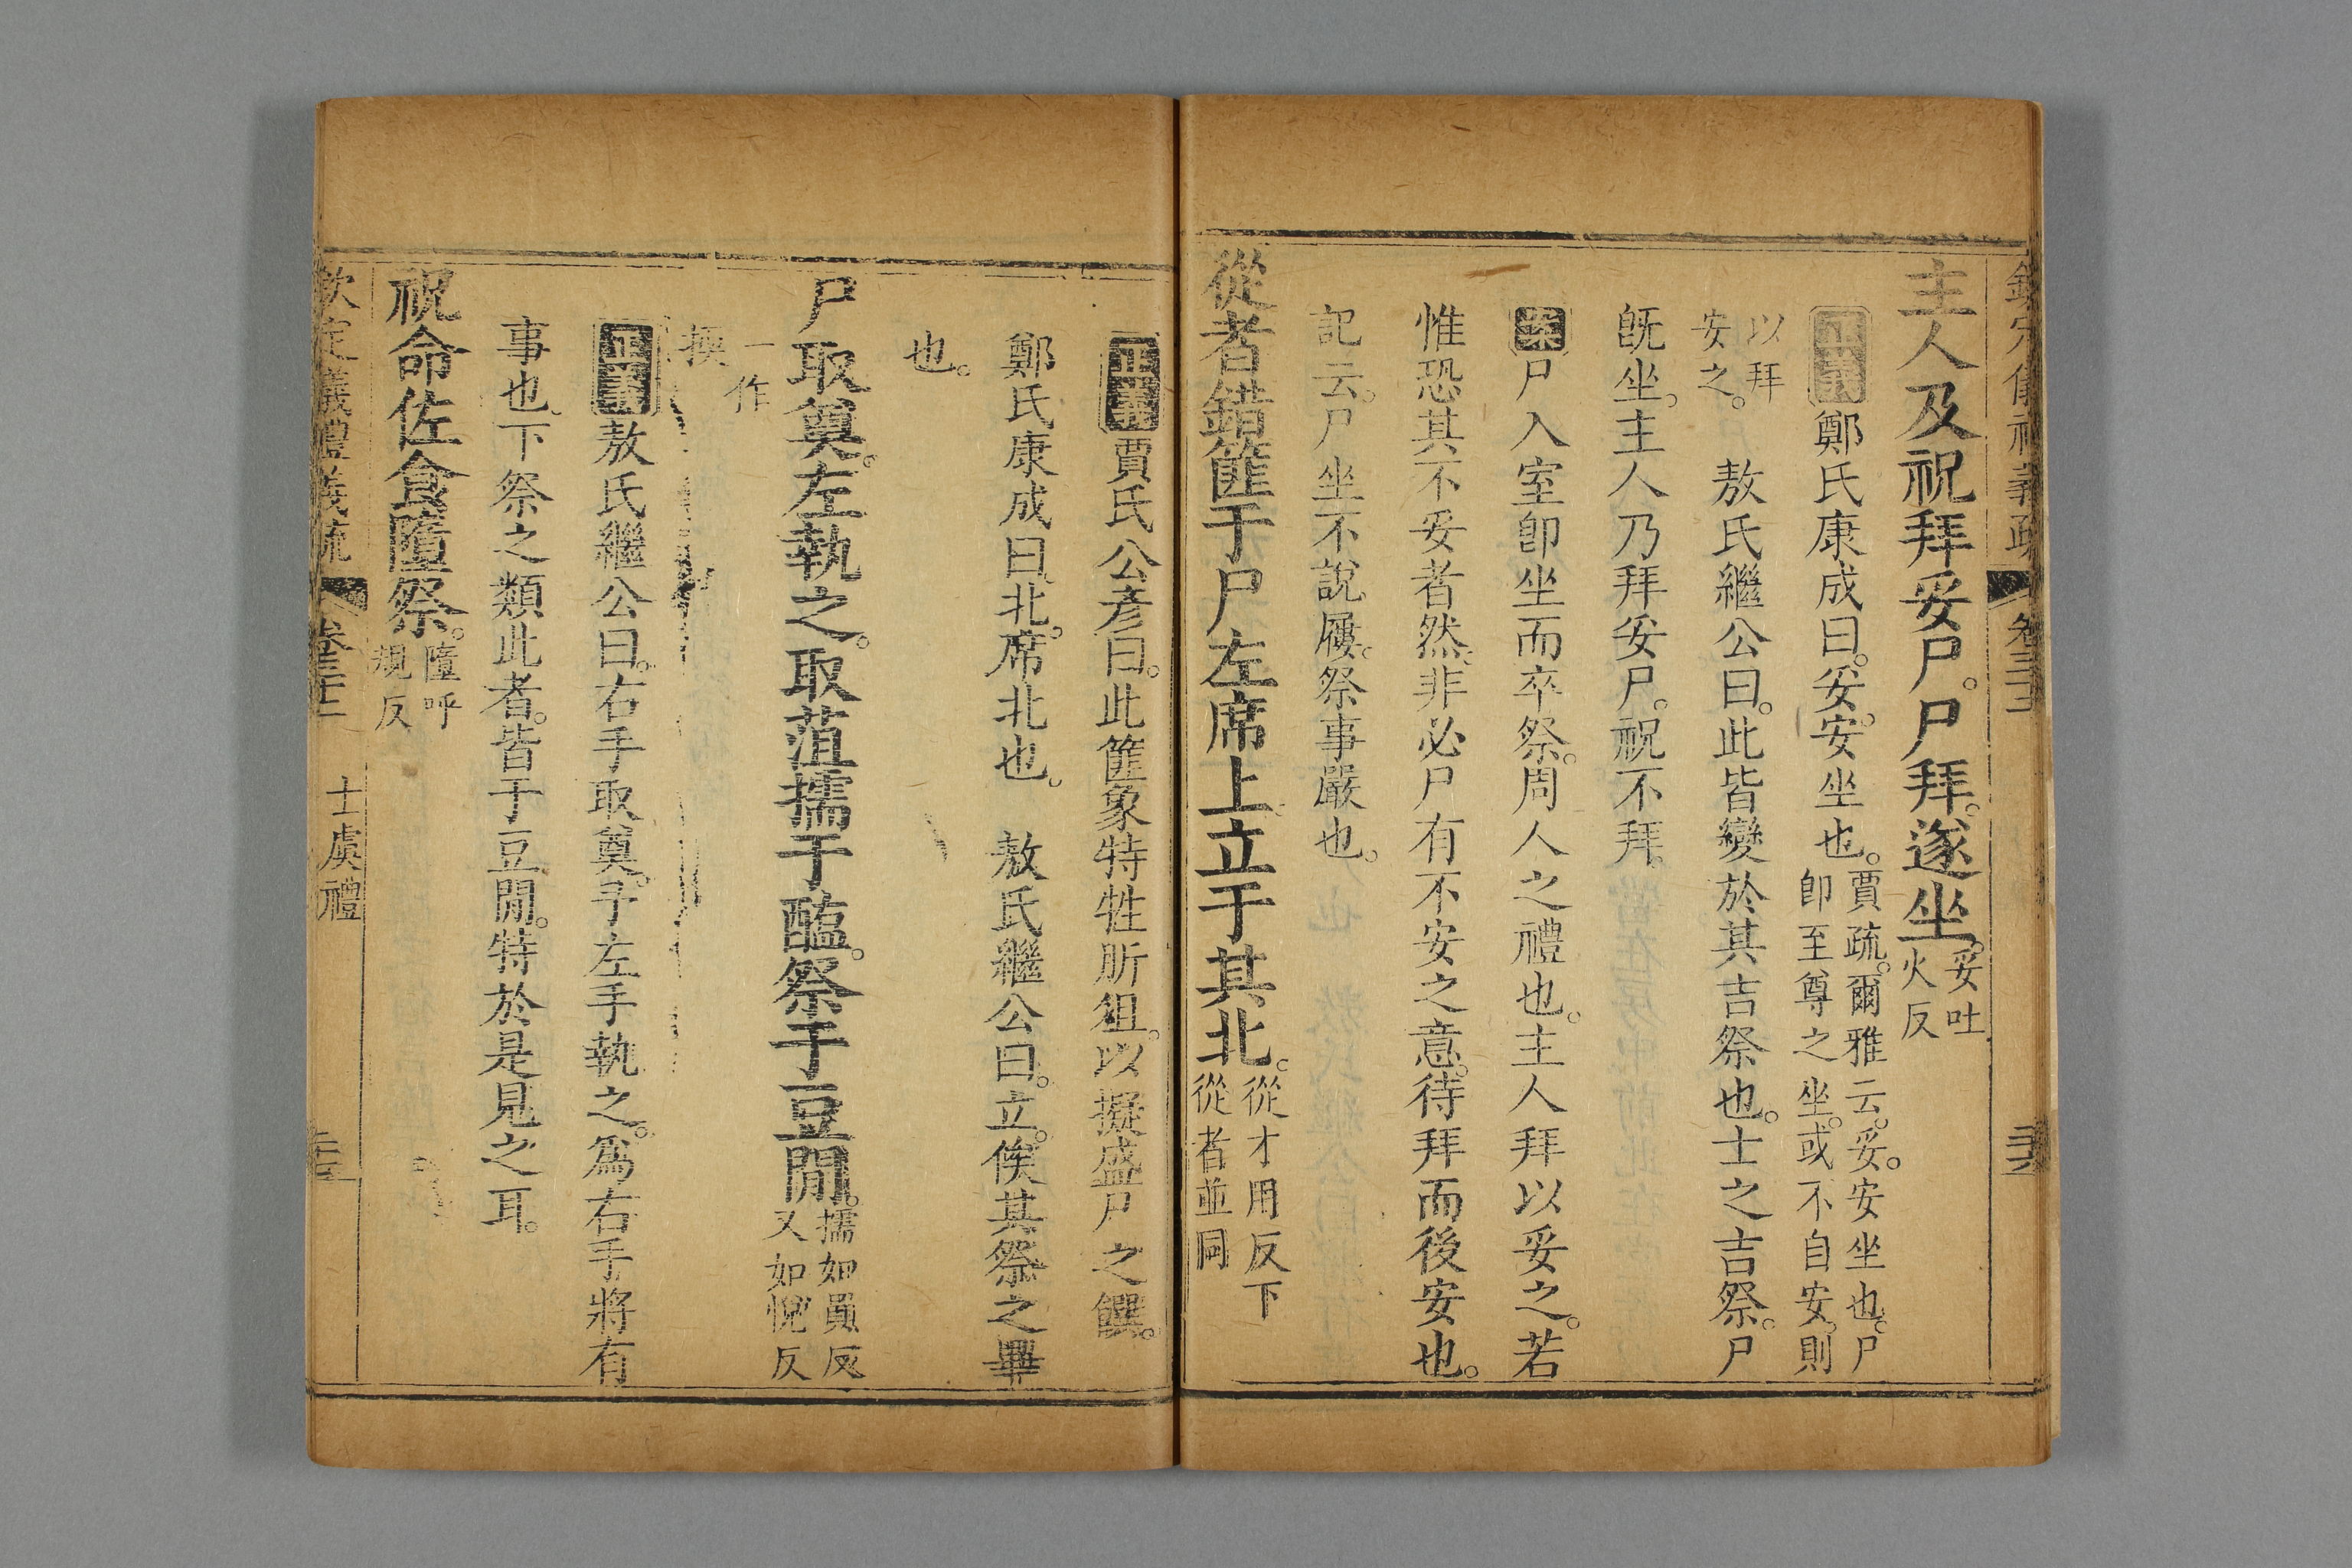 欽定儀禮義疏 卷三十二 三六
主人及祝拜妥尸。尸拜。遂坐。妥吐火反
正義鄭氏康成曰。妥。安坐也。賈疏。爾雅云。妥。安坐也。尸卽至尊之坐。或不自安。則
以拜安之。 敖氏繼公曰。此皆變於其吉祭也。士之吉祭。尸
旣坐。主人乃拜妥尸。祝不拜。
案尸入室卽坐而卒祭。周人之禮也。主人拜以妥之。若
惟恐其不妥者然。非必尸有不安之意。待拜而後安也。
記云。尸坐不說屨。祭事嚴也。
從者錯篚于尸左席上。立于其北。從才用反下從者並同
正義賈氏公彥曰。此篚象特牲肵俎。以擬盛尸之饌。
鄭氏康成曰。北。席北也。 敖氏繼公曰。立。俟其祭之畢
也。
尸取奠。左執之。取菹擩于醢。祭于豆閒。擩如員反又如悅反
一作㨎
正義敖氏繼公曰。右手取奠。予左手執之。爲右手將有
事也。下祭之類此者。皆于豆閒。特於是見之耳。
祝命佐食隋祭。隋呼規反
欽定儀禮義疏 卷三十二 士虞禮